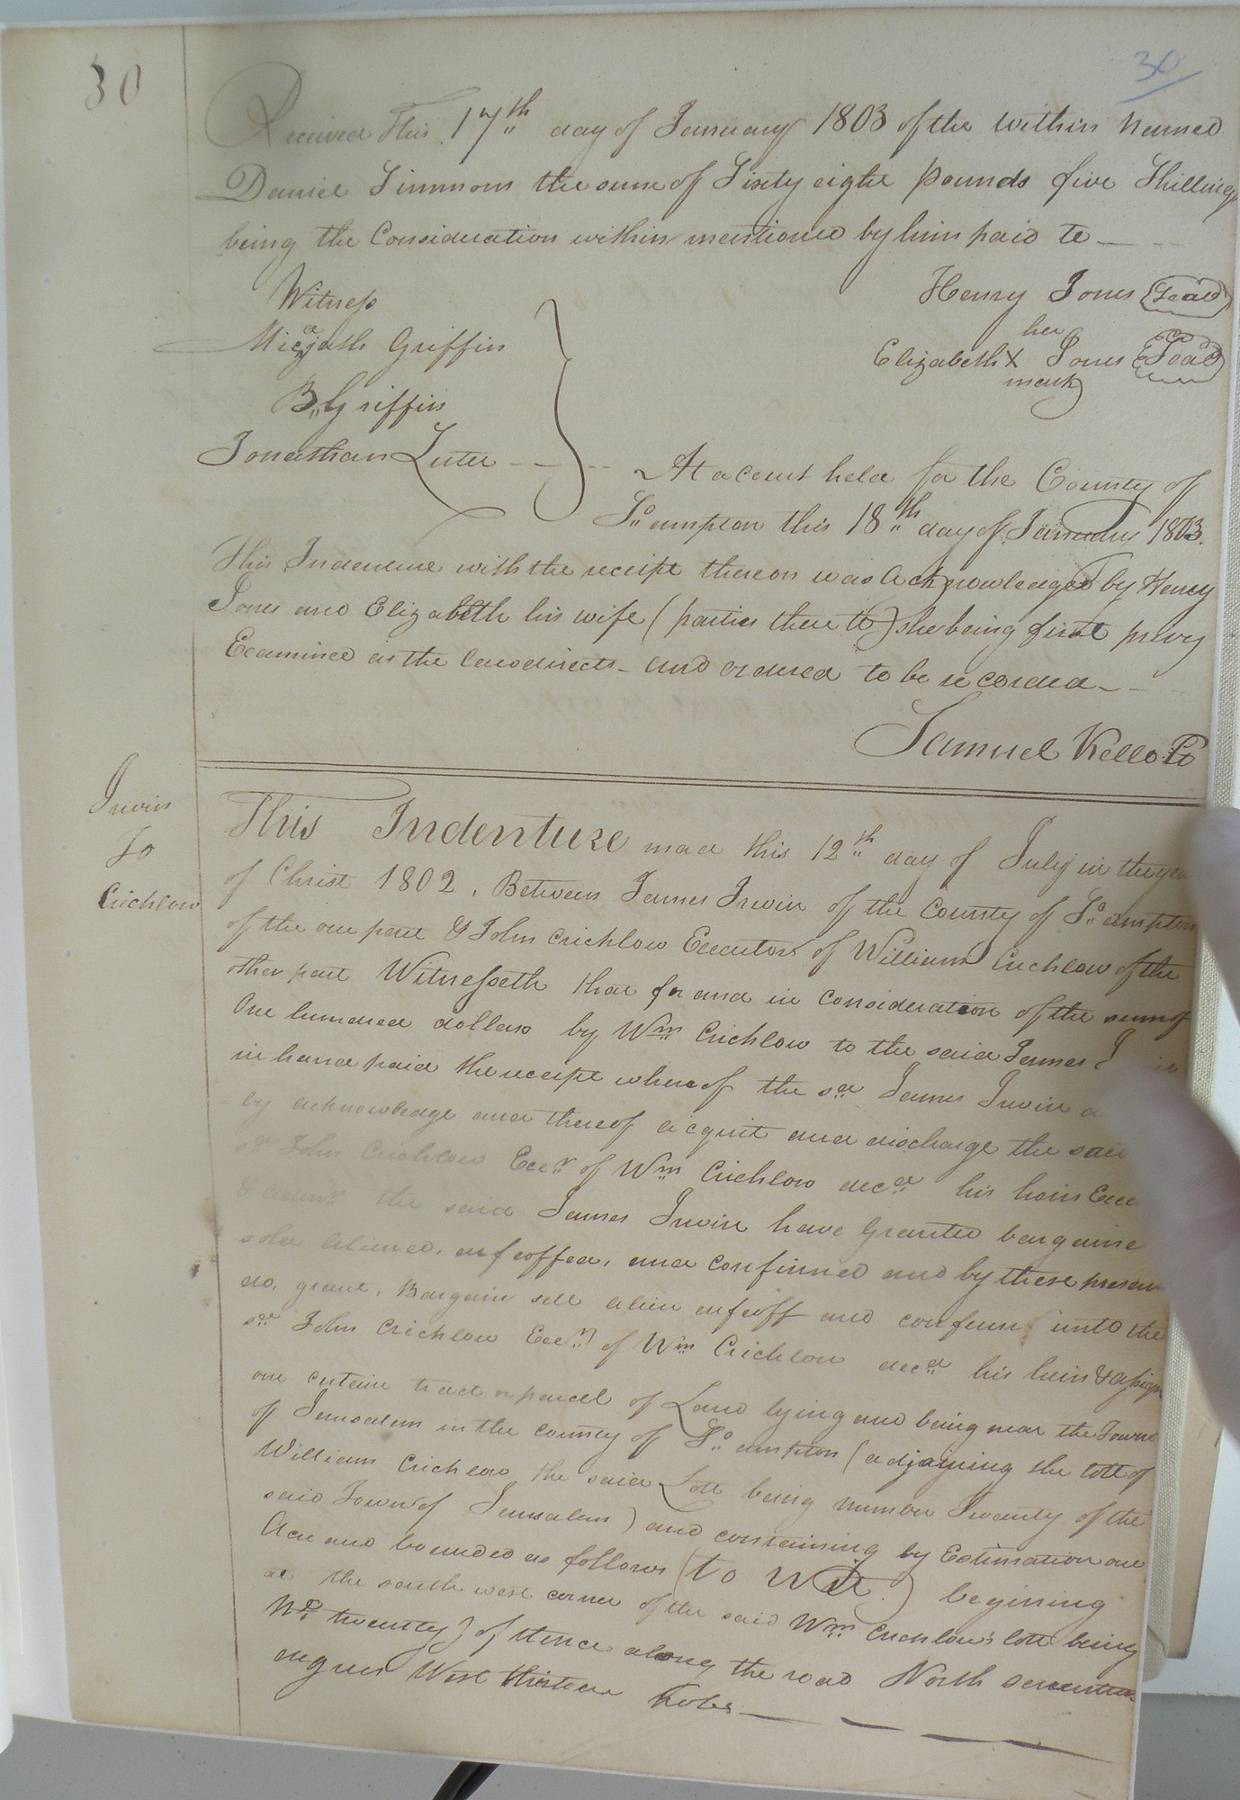 30
30
Received This 17th day of January 1803 of the within named
Daniel Simmons the sum of Sixty eight Pounds five Shillings
being the Consideration within mentioned by him paid to
Witness
Micajah Griffin
B,, Griffin
Jonathan Luter
Henry Jones Seal
her
Elizabeth X Jones Seal
mark
At a court held for the County of
So,,ampton this 18th day of January 1803.
This Indenture with the receipt thereon was acknowledged by Henry
Jones and Elizabeth his wife (parties there to) she being first privy
Examined as the law directs - and ordered to be recorded
Samuel Kello
Irwin
To
Crichlow
This Indenture mad this 12th day of July in the year
of Christ 1802, Between James Irwin of the County of So,,ampton
of the one part & John Crichlow Executor of William Crichlow of the
other part Witnesseth that for and in consideration of the sum of
One hundred dollars by Wm Crichlow to the said James
in hand paid the receipt whereof the sd James Irwin
by acknowledge and thereof acquit and discharge the said
sd John Crichlow Excr of Wm Crichlow decd his heirs
the said James Irwin have Granted bargaine
sold aliened, enfeoffed, and confirmed and by these presen
do, grant, Bargain sell alien enfeoff and confirm unto the
sd John Crichlow Excr of Wm Crichlow decd his heirs & assigns
one certain tract or parcel of Land lying and being near the Town
of Jerusalem in the county of So,,ampton (adjoining the lott of
William Crichlow the said Lott being number Twenty of the
said Town of Jerusalem) and containing by Estimation one
Acre and bounded as follows (to wit.) begining
at the south west corner of the said Wm Crichlow's lott being
No twenty) of thence along the road North seventeen
degrees West thirteen Poles